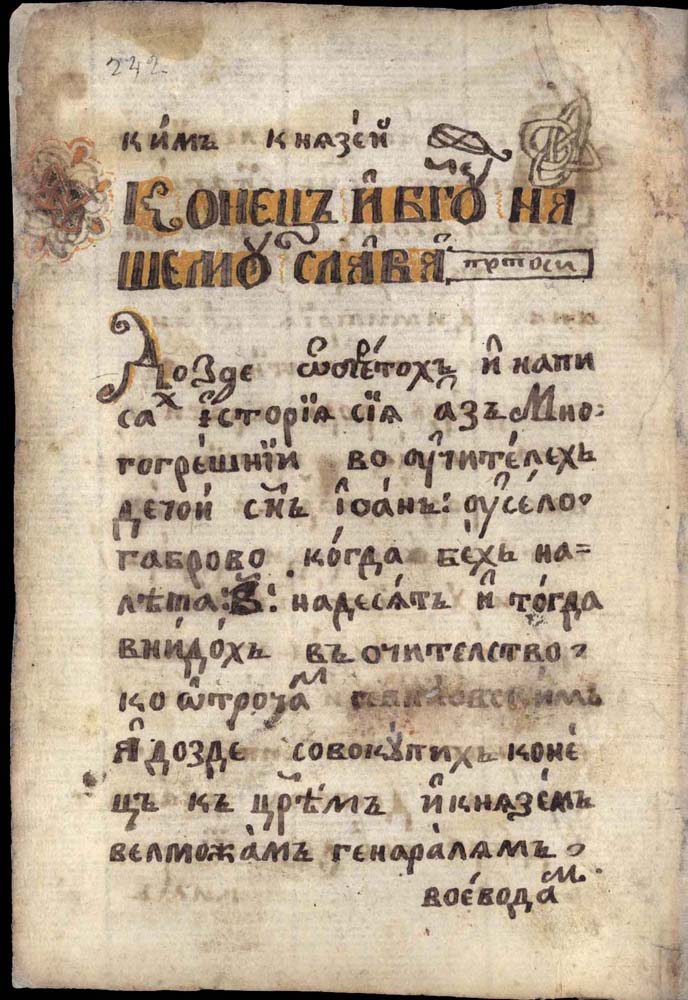 242
кимъ князей
Конецъ и бг҃ꙋ на
шемꙋ слава
До зде ѡбретохъ и напи
саⷯ їсторїѧ сїѧ азъ Мно:
гогрешнїи во ᲂучителехъ
детои сн҃ъ їѡанъ: ᲂу село
габрово когда бехъ на=
лѣта:в҃: надесѧть и тогда
внидохъ въ очителство
ко ѡтрочаⷨ
ꙗ до зде совокꙋпихъ коне
цъ къ цр҃ѣмъ и кнѧземъ
велможамъ генаралѧмъ
воеводаⷨ